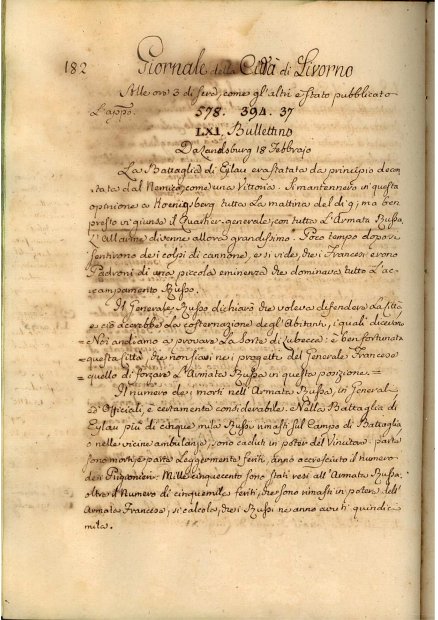 182
Giornale della Città di Livorno
Alle ore 3 di sera, come gl'altri è stato pubblicato
L'appo. 578. 394. 37
LXI. Bullettino
Da Landsburg 18 Febbrajo
La Battaglia di Eylau era stata da principio decan
tata dal Nemico, come una Vittoria. Si mantennero in questa
opinione a Koenigsberg tutta la mattina del dì 9; ma ben
presto vi giunse il Quartier-generale, con tutta l'Armata Russa.
L'Allarme divenne allora grandissimo. Poco tempo dopo vi
sentirono dei colpi di cannone, e si vide, che i Francesi erono
Padroni di una piccola eminenza che dominava tutto l'ac-
campamento Russo.
Il Generale Russo dichiarò che voleva difendere la Città
e ciò accrebbe la costernazione degl'Abitanti, i quali dicevano
= Noi andiamo a provare la sorte di Lubecca: è ben fortunata
questa Città che non siavi nei progetti del Generale Francese
quello di forzare l'Armata Russa in questa posizione. =
Il numero dei morti nell'Armata Russa, in Generali,
ed Officiali, è certamente considerabile. = Nella Battaglia di
Eylau più di cinque mila Russi rimasti sul Campo di Battaglia
o nelle vicine ambulanze, sono caduti in poter del Vincitore: parte
sono morti, e parte leggermente feriti, anno accresciuto il numero
dei Prigionieri. Mille cinquecento sono stati resi all'Armata Russa.
Oltre il Numero di cinquemila feriti, che sono rimasti in potere dell'
Armata Francese, si calcola, che i Russi ne anno avuti quindici
mila.